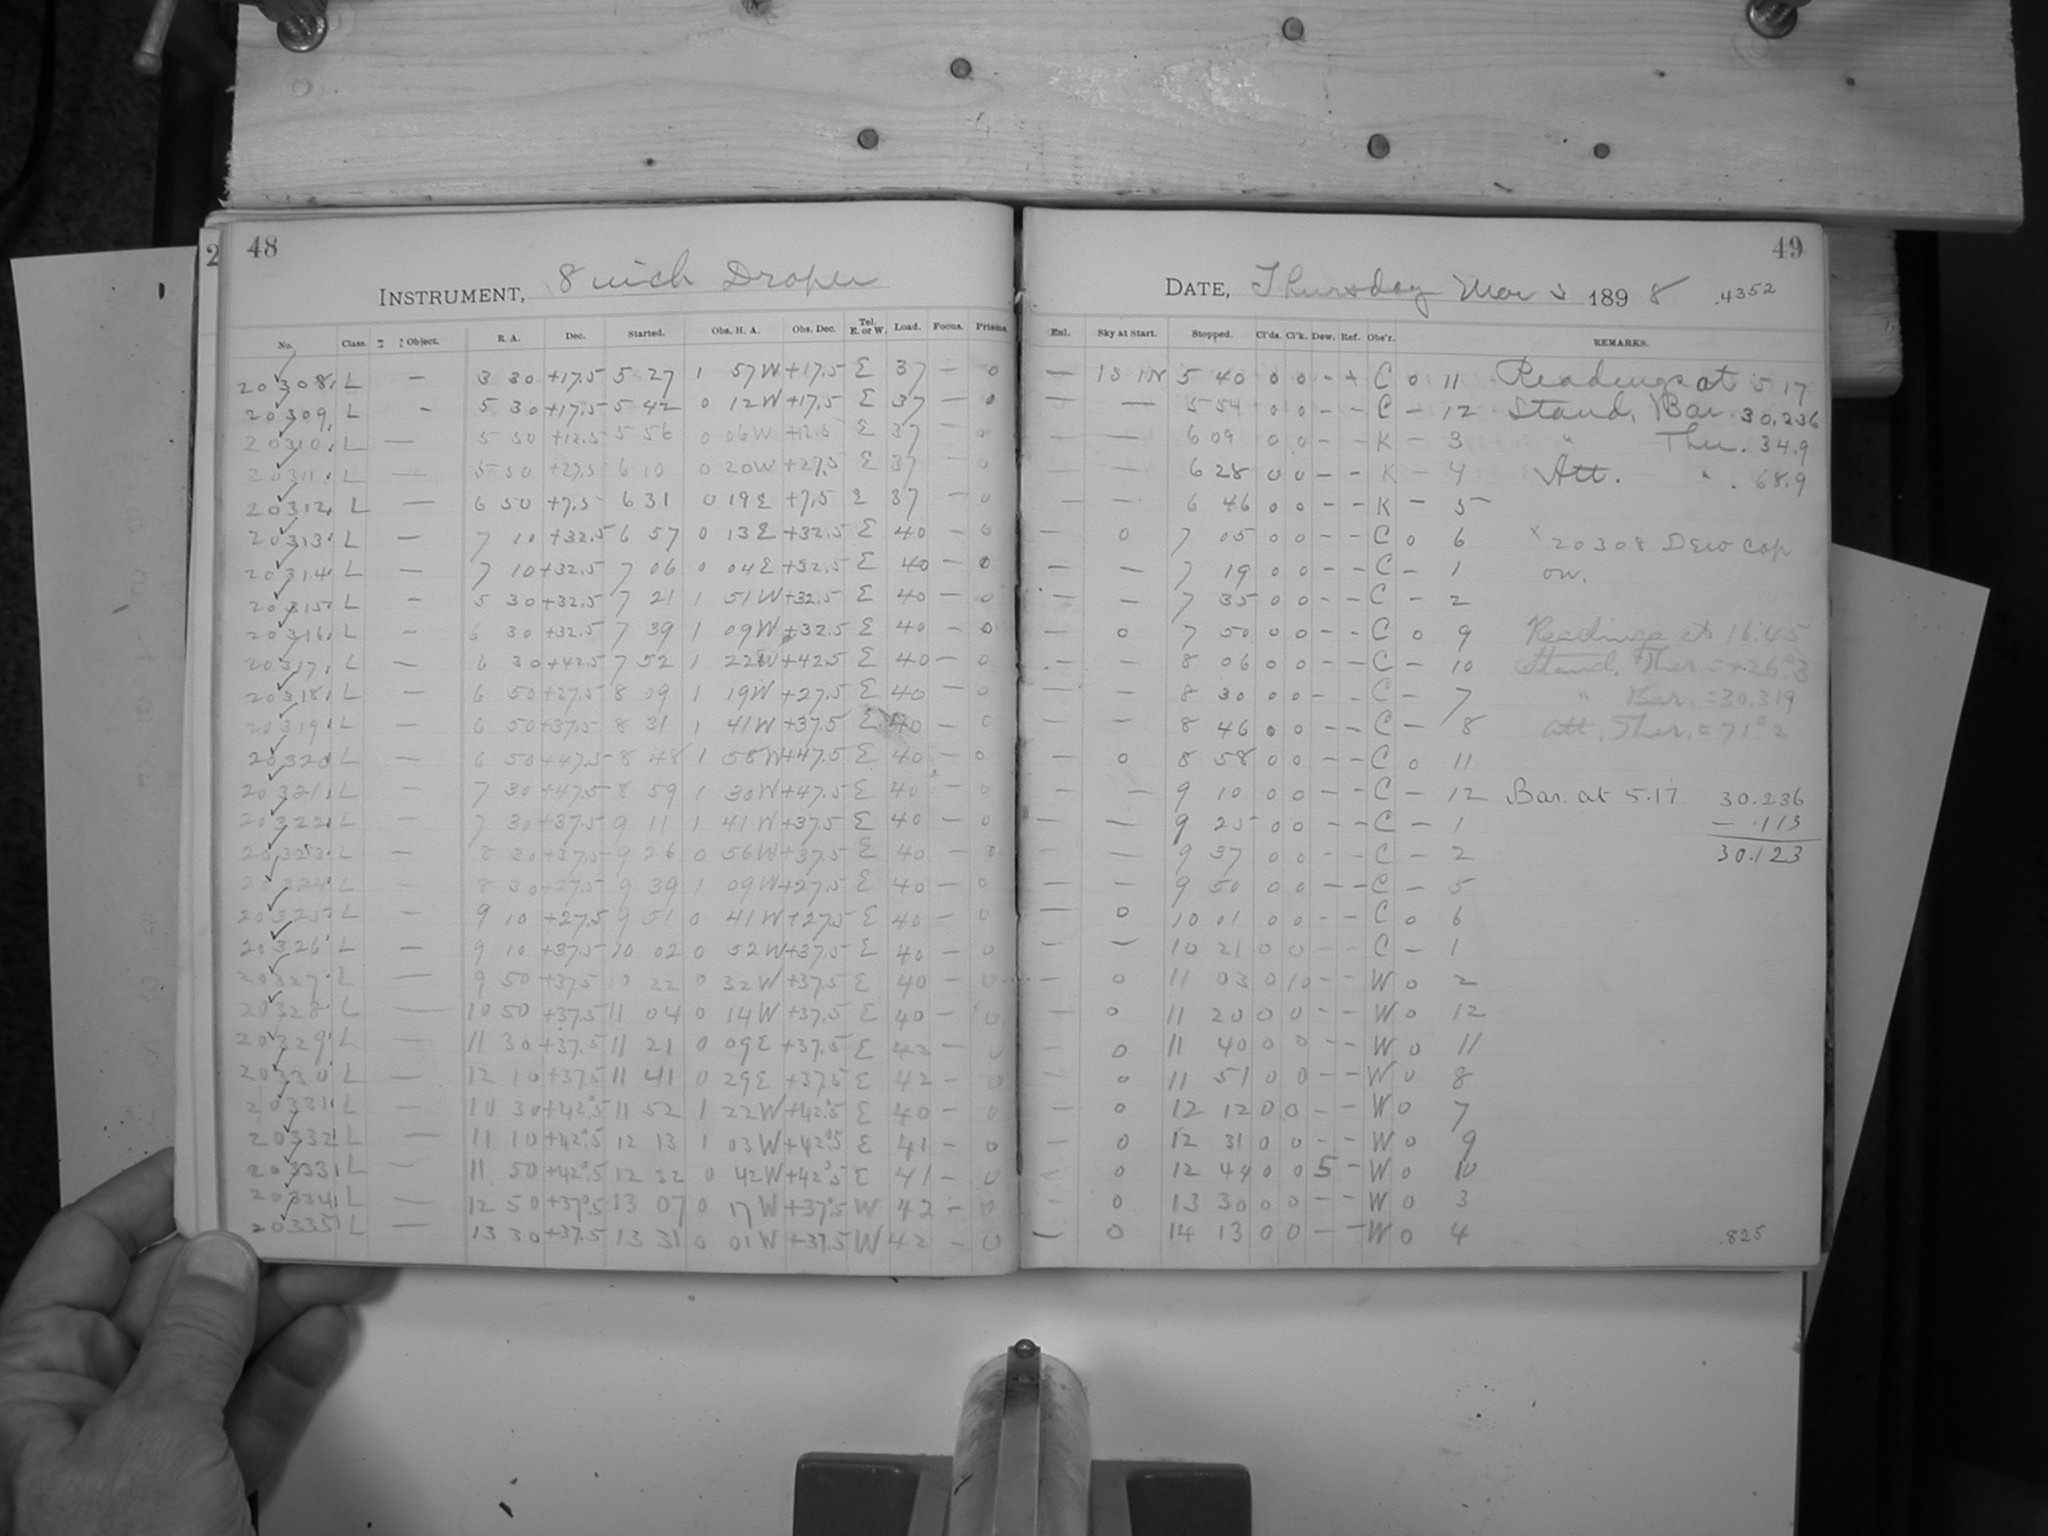 2
48
INSTRUMENT, 8 inch Draper
No. Class. Object. R. A. Dec. Started. Obs. H. A. Obs. Dec. Tel. E. or W. Load. Focus. Prisms.
20308. L — 3 30 +17.5 5 27 1 57W +17.5 E 37 — 0
20309. L - 5 30 +17.5 5 42 0 12W +17.5 E 37 — 0
20310. L — 5 50 +12.5 5 56 0 06W +12.5 E 37 — 0
20311. L — 5 50 +27.5 6 10 0 20W +27.5 E 37 — 0
20312. L — 6 50 +7.5 6 31 0 19E +7.5 E 37 — 0
20313. L — 7 10 +32.5 6 57 0 13E +32.5 E 40 — 0
20314. L — 7 10 +32.5 7 06 0 04E +32.5 E 40 — 0
20315. L — 5 30 +32.5 7 21 1 51W +32.5 E 40 — 0
20316. L — 6 30 +32.5 7 39 1 09W +32.5 E 40 — 0
20317. L — 6 30 +42.5 7 52 1 22W +42.5 E 40 — 0
20318. L — 6 50 +27.5 8 09 1 19W +27.5 E 40 — 0
20319. L — 6 50 +37.5 8 31 1 41W +37.5 E 40 — 0
20320 L — 6 50 +47.5 8 48 1 58W +47.5 E 40 — 0
20321. L — 7 30 +47.5 8 59 1 30W +47.5 E 40 — 0
20322. L — 7 30 +37.5 9 11 1 41W +37.5 E 40 — 0
20323. L — 8 30 +37.5 9 26 0 56W +37.5 E 40 — 0
20324. L — 8 30 +27.5 9 39 1 09W +27.5 E 40 — 0
20325. L — 9 10 +27.5 9 51 0 41W +27.5 E 40 — 0
20326 L — 9 10 +37.5 10 02 0 52W +37.5 E 40 — 0
20327. L — 9 50 +37.5 10 22 0 32W +37.5 E 40 — 0
20328 L — 10 50 +37.5 11 04 0 14W +37.5 E 40 — 0
20329 L — 11 30 +37.5 11 21 0 09E +37.5 E 42 — 0
20330 L — 12 10 +37.5 11 41 0 29E +37.5 E 42 — 0
20331 L — 10 30 +42.5 11 52 1 22W +42.5 E 40 — 0
20332 L — 11 10 +42.5 12 13 1 03W +42.5 E 41 — 0
20333 L — 11 50 +42.5 12 32 0 42W +42.5 E 41 — 0
20334 L — 12 50 +37.5 13 07 0 17W +37.5 W 42 — 0
20335 L — 13 30 +37.5 13 31 0 01W +37.5 W 42 — 0
49
DATE, Thursday Mar 3 1898 .4352
Enl. Sky at Start. Stopped. Cl'ds. Cl'k. Dew. Ref. Obs'r. REMARKS.
— 18 1N 5 40 0 0 - + C 0 11 Readings at 5 17
— — 5 54 0 0 - - C - 12 Stand. Bar. 30.236
— — 6 09 0 0 - - K - 3 " Ther. 34.9
— — 6 28 0 0 - - K - 4 Att. " . 68.9
— — 6 46 0 0 - - K - 5
— 0 7 05 0 0 - - C 0 6 x 20308 Dew cap
— — 7 19 0 0 - - C - 1 on.
— — 7 35 0 0 - - C - 2
— 0 7 50 0 0 - - C 0 9 Readings at 16.45
— — 8 06 0 0 - - C - 10 Stand. Ther. = +26°3
— — 8 30 0 0 - - C - 7 " Bar. = 30.319
— — 8 46 0 0 - - C - 8 Att. Ther. = 71°2
— 0 8 58 0 0 - - C 0 11
— — 9 10 0 0 - - C - 12 Bar. at 5.17 30.236
— — 9 25 0 0 - - C - 1 — .113
— — 9 37 0 0 - - C - 2 30.123
— — 9 50 0 0 - - C - 5
— 0 10 01 0 0 - - C 0 6
— — 10 21 0 0 - - C - 1
— 0 11 03 0 10 - - W 0 2
— 0 11 20 0 0 - - W 0 12
— 0 11 40 0 0 - - W 0 11
— 0 11 51 0 0 - - W 0 8
— 0 12 12 0 0 - - W 0 7
— 0 12 31 0 0 - - W 0 9
— 0 12 49 0 0 5 - W 0 10
— 0 13 30 0 0 - - W 0 3
— 0 14 13 0 0 - - W 0 4
825